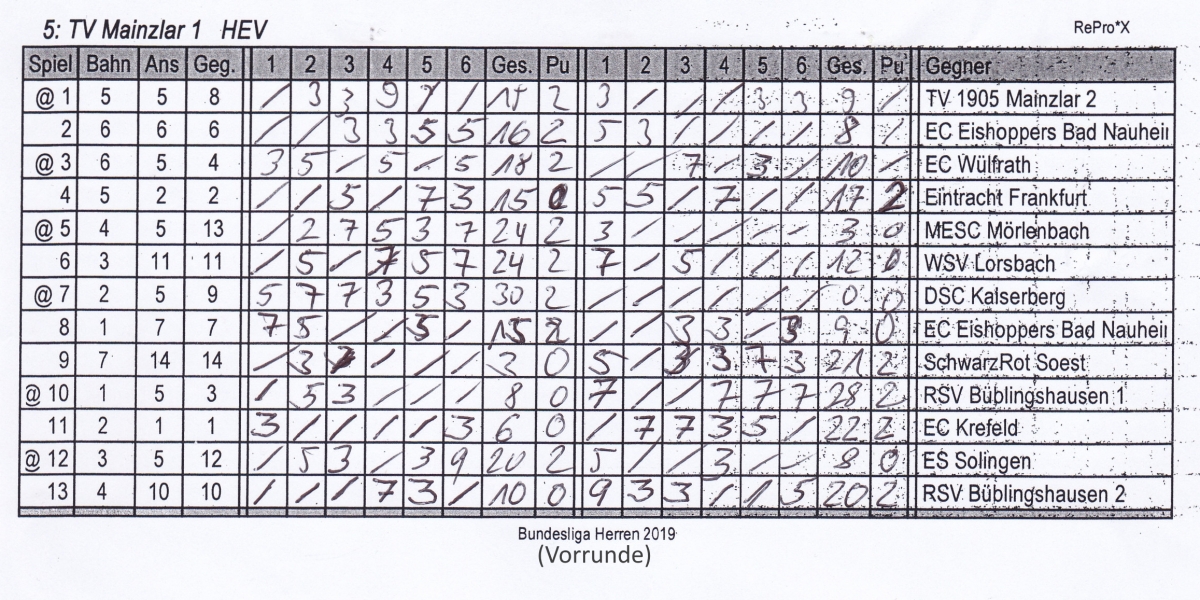 5: TV Mainzlar 1 HEV
RePro*X
Spiel Bahn Ans Geg. 1 2 3 4 5 6 Ges. Pu 1 2 3 4 5 6 Ges. Pu Gegner
@ 1 5 5 8 / 3 3 9 / / 2 3 / / / 3 3 9 / TV 1905 Mainzlar 2
2 6 6 6 / / 3 3 5 5 16 2 5 3 / / / / 8 / EC Eishoppers Bad Nauhein
@ 3 6 5 4 3 5 / 5 - 5 18 2 / / 7 / 3 / 10 / EC Wülfrath
4 5 2 2 / / 5 / 7 3 15 0 5 5 / 7 / / 17 2 Eintracht Frankfurt
@ 5 4 5 13 / 2 7 5 3 7 24 2 3 / / / / - 3 0 MESC Mörlenbach
6 3 11 11 / 5 / 7 5 7 24 2 7 / 5 / / / 12 0 WSV Lorsbach
@ 7 2 5 9 5 7 7 3 5 3 30 2 / / / / / / 0 0 DSC Kaiserberg
8 1 7 7 7 5 / / 5 / 15 2 / / 3 3 / 3 9 0 EC Eishoppers Bad Nauhein
9 7 14 14 / 3 / / / / 3 0 5 / 3 3 7 3 21 2 SchwarzRot Soest
@ 10 1 5 3 / 5 3 / / / 8 0 7 / / 7 7 7 28 2 RSV Büblingshausen 1
11 2 1 1 3 / / / / 3 6 0 / 7 7 3 5 / 22 2 EC Krefeld
@ 12 3 5 12 / 5 3 / 3 9 20 2 5 / / 3 / - 8 0 ES Solingen
13 4 10 10 / / / 7 3 / 10 0 9 3 3 / / 5 20 2 RSV Büblingshausen 2
Bundesliga Herren 2019
(Vorrunde)